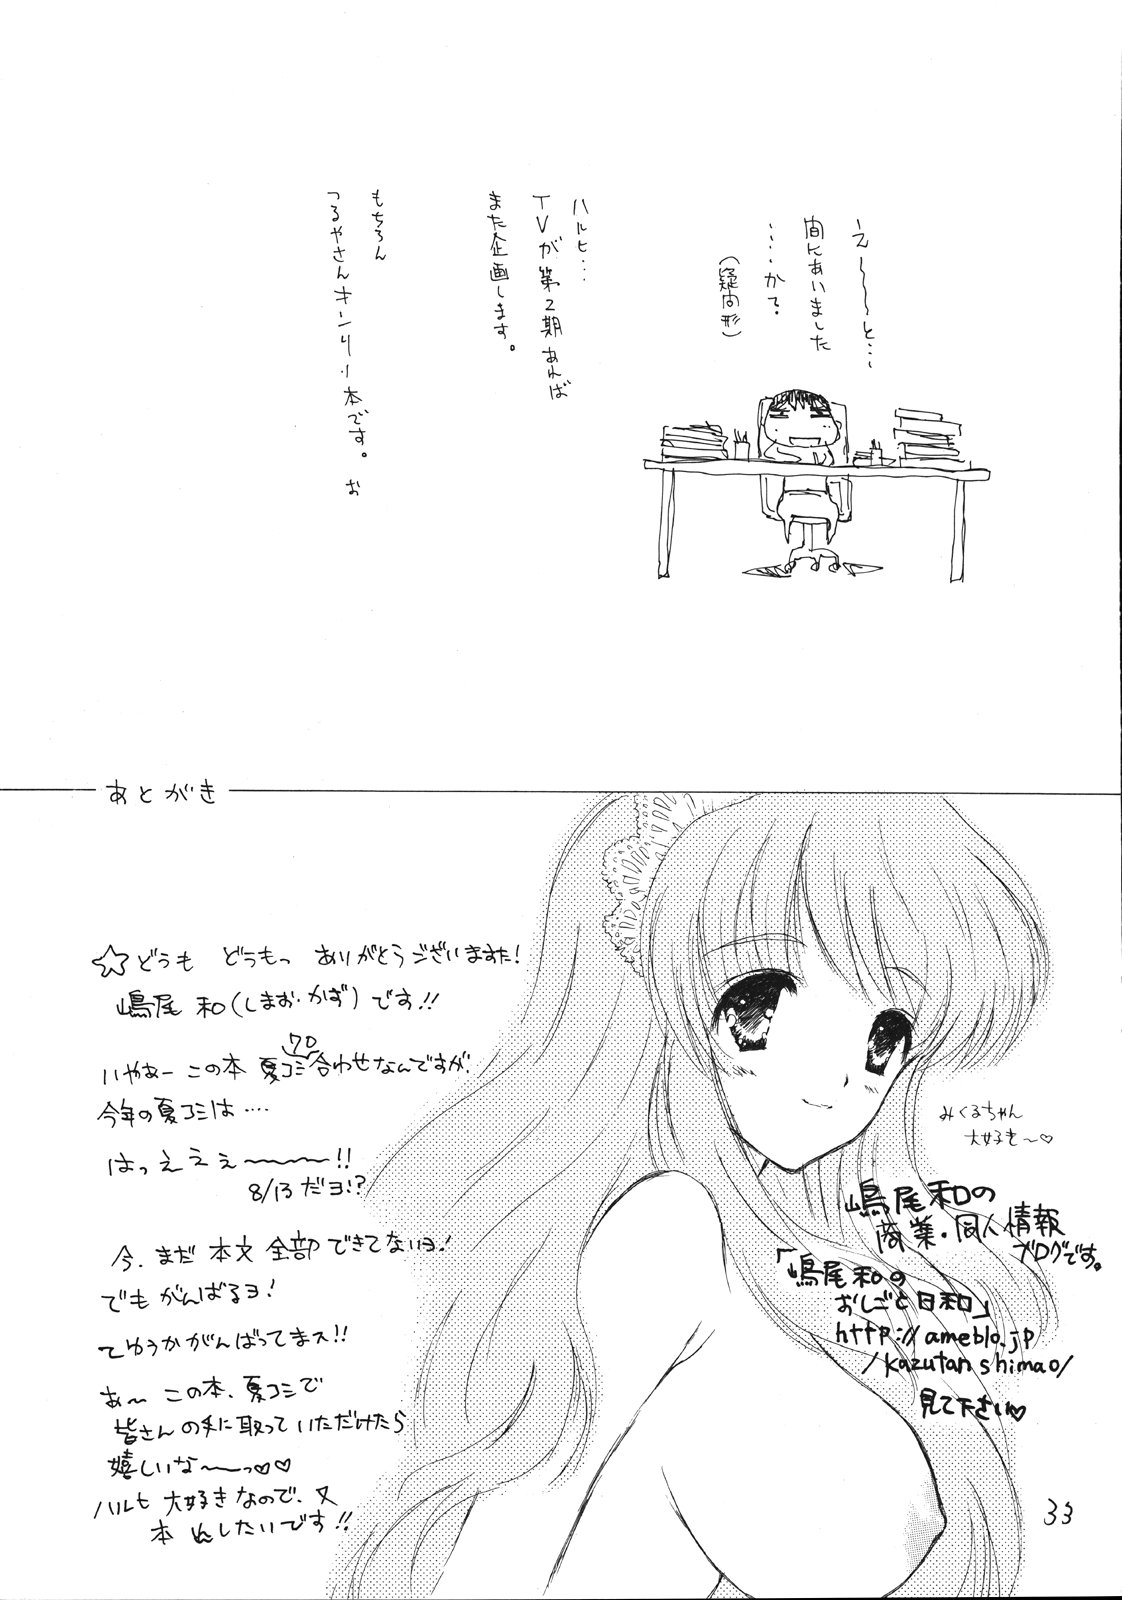 えーーーと…
間にあいました
…‥か?
(疑問形)
ハルヒ…
TVが第2期あれば
また企画します。
もちろん
つるやさんオンリー本です。 お
あとがき
☆どうも どうもっ ありがとうございますた!
嶋尾 和(しまお・かず)です!!
いやあー この本 夏コミ合わせなんですが、
プロ
今年の夏コミは‥‥
はっええぇ〜〜〜!!
8/13だヨ!?
今、まだ 本文 全部 できてないヨ!
でもがんばるヨ!
てゆうかがんばってまス!!
あ〜 この本、夏コミで
皆さんの手に取っていただけたら
嬉しいな〜〜っ♡♡
ハルヒ 大好きなので、又
本 したいです!!
みくるちゃん
大好き〜♡
嶋尾和の
商業・同人情報
ブログです。
「嶋尾和の
おしごと日和」
http://ameblo.jp
/kazutanshimao/
見て下さい♡
33